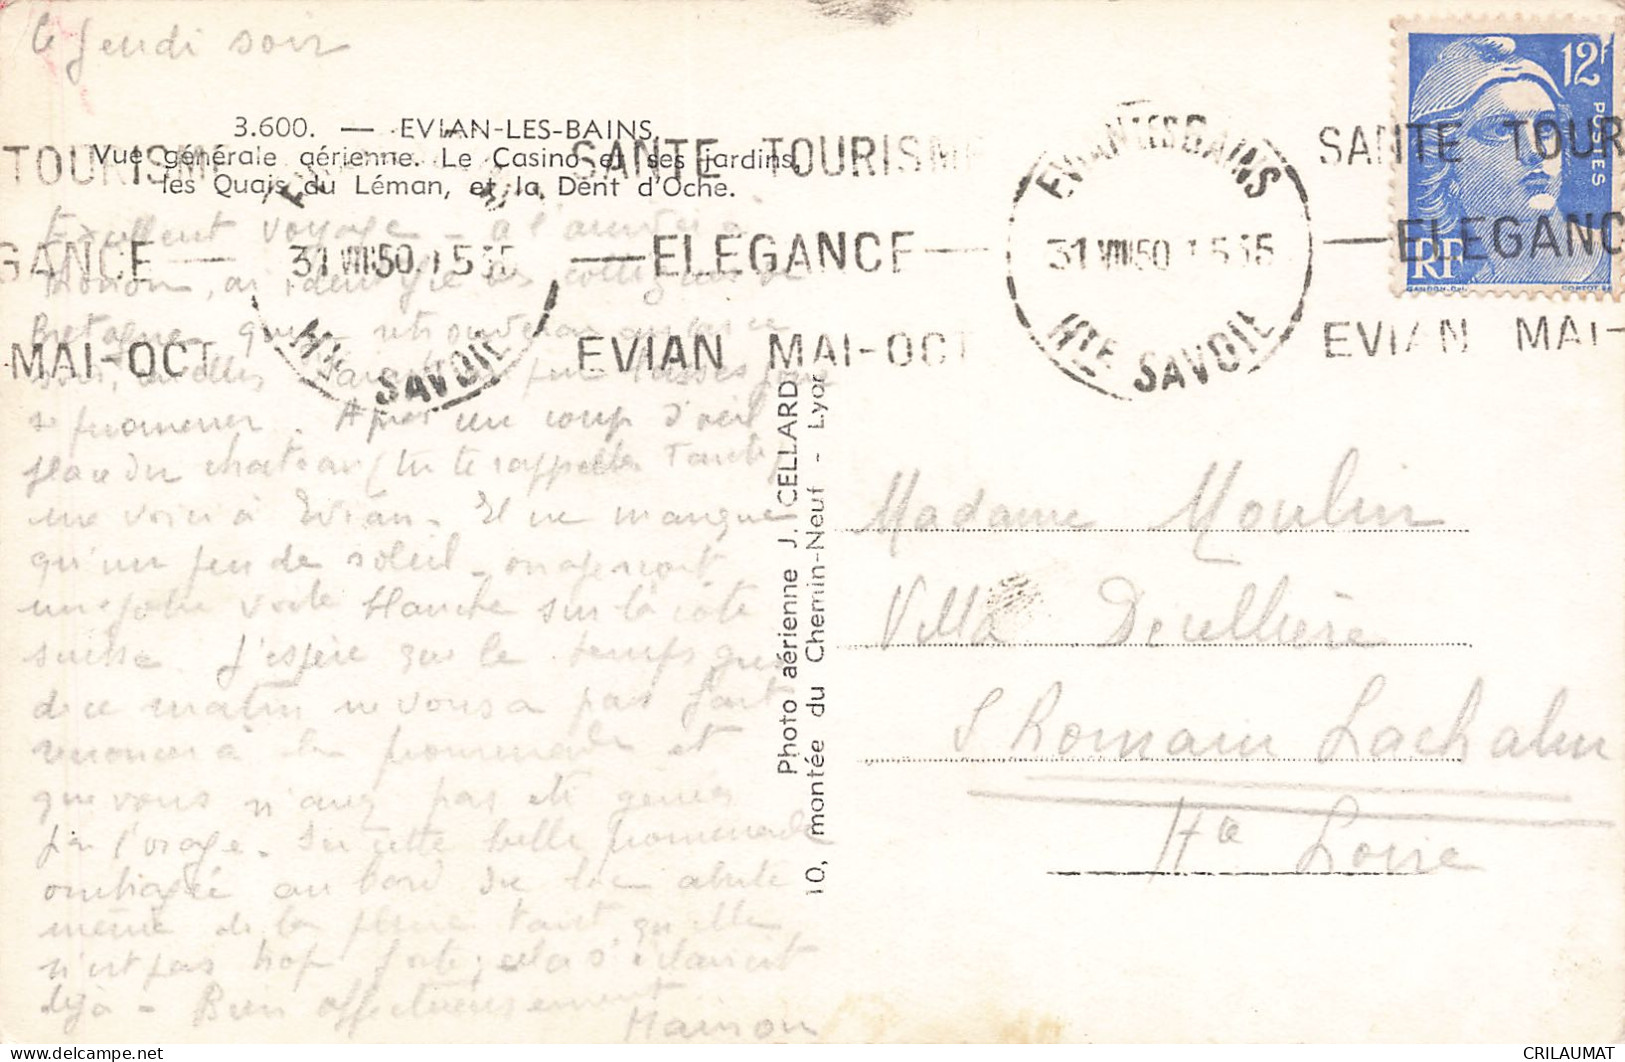 Jeudi soir
3.600. — EVIAN-LES-BAINS.
Vue générale aérienne. Le Casino et ses jardins,
les Quais du Léman, et la Dent d'Oche.
TOURISME SANTE TOURISME
GANCE — 31 VIII 50 15 35 — ELEGANCE —
MAI-OCT Hte SAVOIE EVIAN MAI-OCT
EVIAN LES BAINS
31 VIII 50 15 35
Hte SAVOIE
SANTE TOUR
— ELEGANC
EVIAN MAI-
12f
POSTES
RF
Excellent voyage - à l'arrivée à
Thonon, ai
Bretagne que
se promener. Après un coup d'œil
place du chateau (tu te rappelles Tante)
me voici à Evian. Il ne manque
qu'un peu de soleil - on aperçoit
une jolie voile blanche sur la côte
suisse. J'espère que le temps gris
de ce matin ne vous a pas fait
renoncer à la promenade et
que vous n'avez pas été gênés
par l'orage. Sur cette belle promenade
ombragée au bord du lac abrite
même de la pluie tant qu'elle
n'est pas trop forte; cela s'éclaircit
déjà - Bien affectueusement
Photo aérienne J. CELLARD
10, montée du Chemin-Neuf - Lyon
Madame Moulin
Villa
S Romain Lachalm
Hte Loire
CRILAUMAT